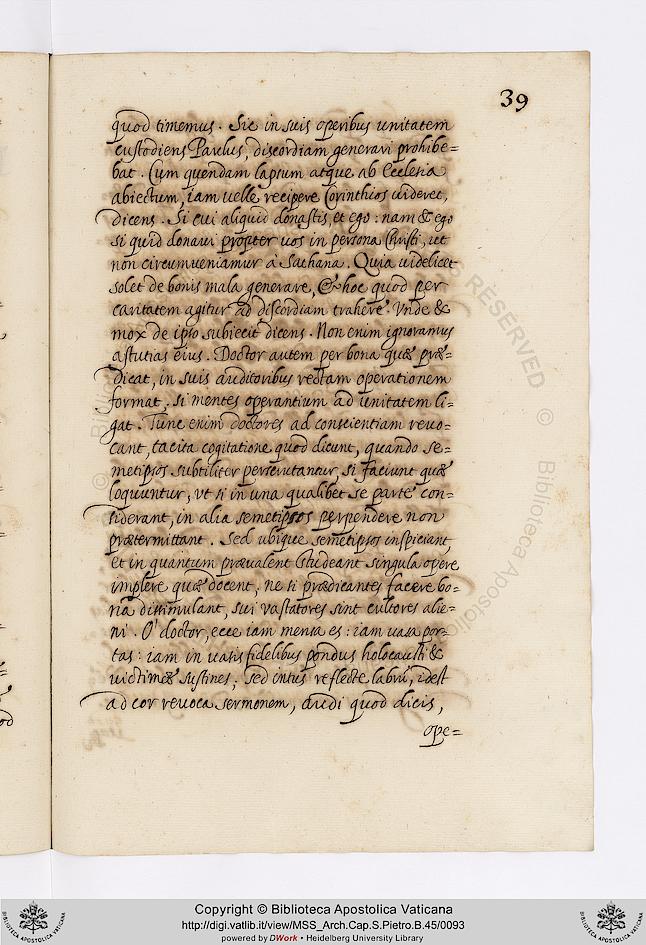 39
quod timemus. Sic in suis operibus unitatem
custodiens Paulus, discordiam generari prohibe=
bat. Cum quendam lapsum atque ab Ecclesia
abiectum, iam uelle recipere Corinthios uideret,
dicens. Si cui aliquid donastis, et ego: nam & ego
si quid donaui propter uos in persona Christi, ut
non circumueniamur à Sathana. Quia uidelicet
solet de bonis mala generare, & hoc quod per
caritatem agitur ad discordiam trahere. Vnde &
mox de ipso subiecit dicens. Non enim ignoramus
astutias eius. Doctor autem per bona quæ præ=
dicat, in suis auditoribus rectam operationem
format, si mentes operantium ad unitatem li=
gat. Tunc enim doctores ad conscientiam reuo=
cant, tacita cogitatione quod dicunt, quando se=
metipsos subtiliter perscrutantur, si faciunt quæ
loquuntur, vt si in una qualibet se parte con=
siderant, in alia semetipsos perpendere non
prætermittant. Sed ubique semetipsos inspiciant,
et in quantum præualent studeant singula opere
implere quæ docent, ne si prædicantes facere bo=
na dissimulant, sui vastatores sint cultores alie=
ni. O' doctor, ecce iam mensa es: iam uasa por=
tas: iam in uasis fidelibus pondus holocausti &
uictimæ sustines, sed intus reflecte labrũ, idest
ad cor reuoca sermonem, audi quod dicis,
ope=
RESERVED © Biblioteca Apostolica
Copyright © Biblioteca Apostolica Vaticana
http://digi.vatlib.it/view/MSS_Arch.Cap.S.Pietro.B.45/0093
powered by DWork • Heidelberg University Library